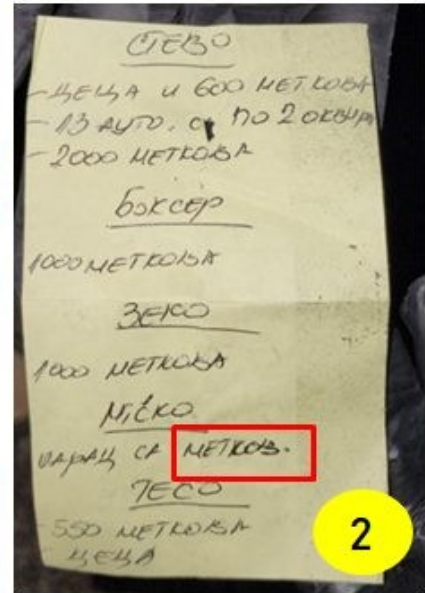 СТЕВО
- ЦЕЦА И 600 МЕТКОВА
- 13 АУТО. СА ПО 2 ОКВИРА
- 2000 МЕТКОВА
БОКСЕР
1000 МЕТКОВА
ЗЕКО
1000 МЕТКОВА
МИЋКО
ШАРАЦ СА МЕТКОВ.
ТЕСО
- 550 МЕТКОВА
- ЦЕЦА
2